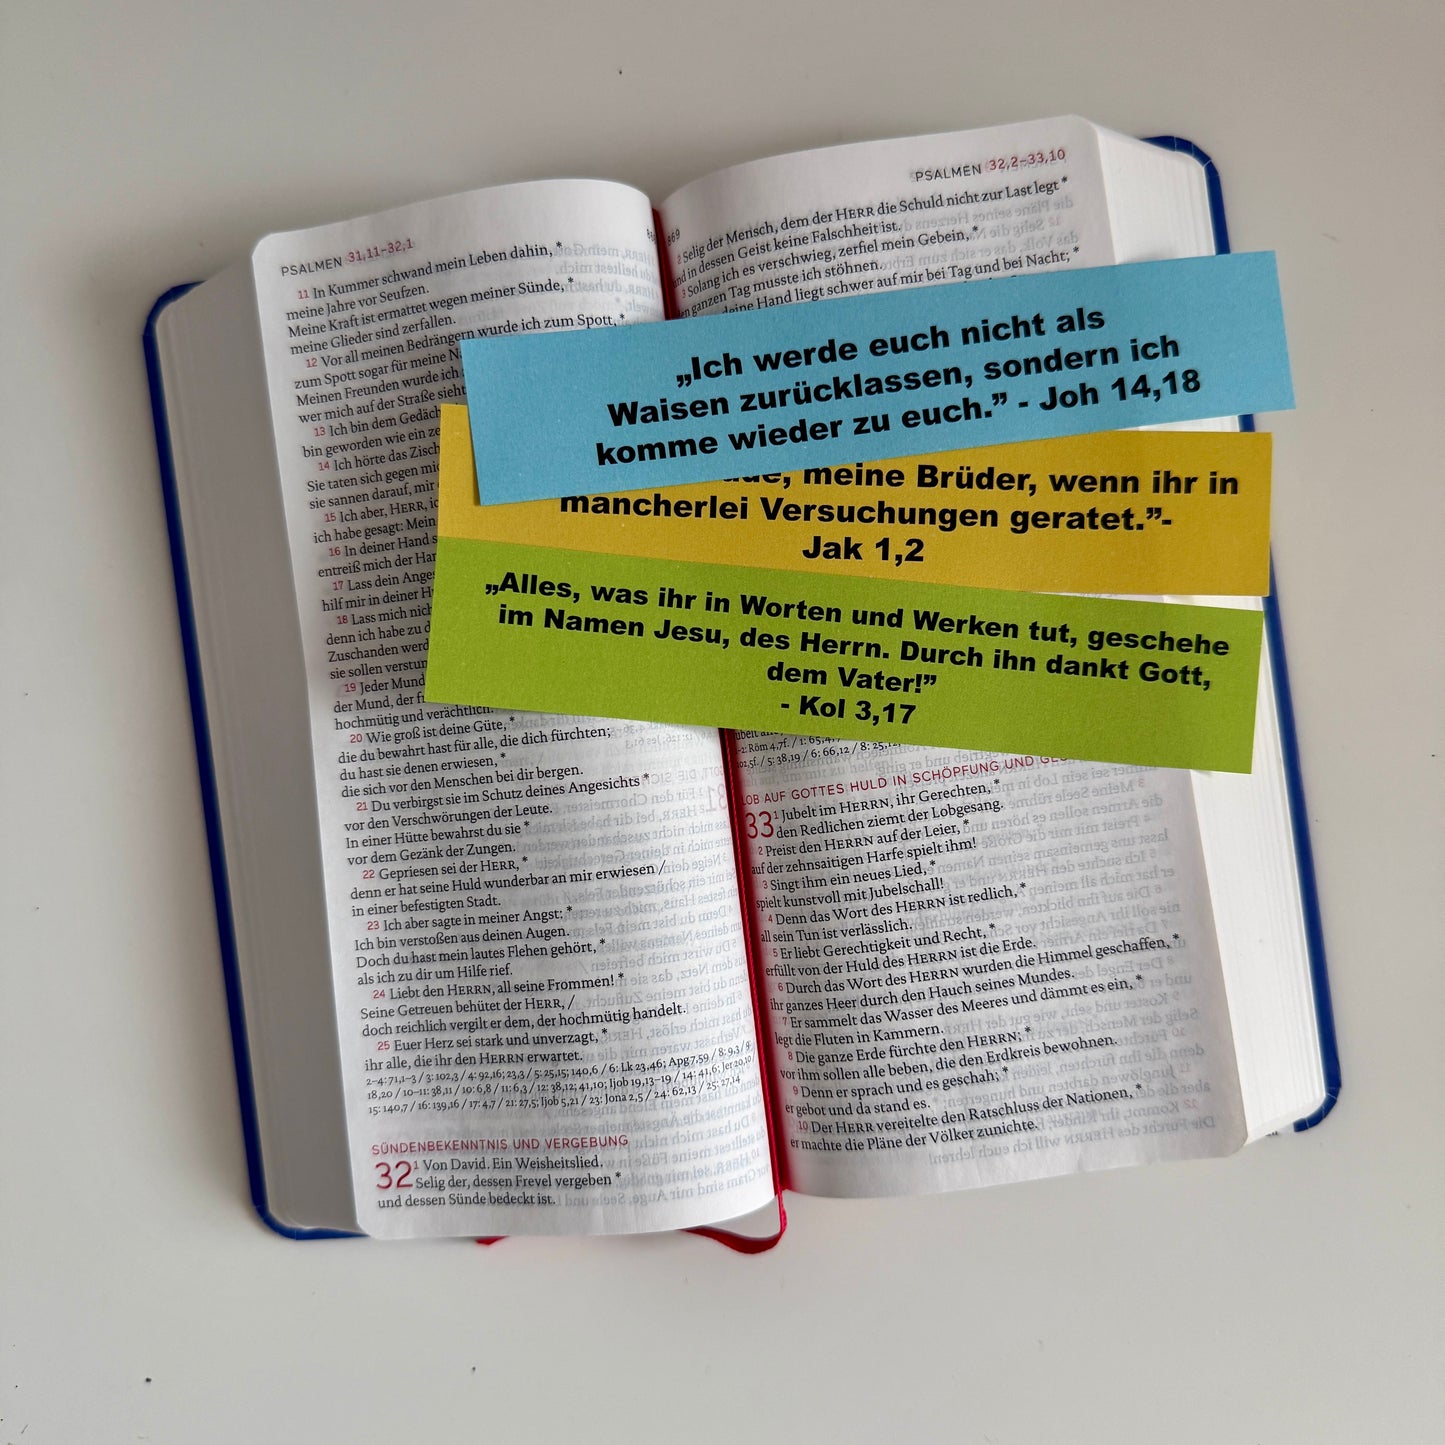 PSALMEN 31,11–32,1
11 In Kummer schwand mein Leben dahin, *
meine Jahre vor Seufzen.
Meine Kraft ist ermattet wegen meiner Sünde, *
meine Glieder sind zerfallen.
12 Vor all meinen Bedrängern wurde ich zum Spott, *
zum Spott sogar für meine
Meinen Freunden wurde ich
wer mich auf der Straße sieht
13 Ich bin dem
bin geworden wie ein
14 Ich hörte das
Sie taten sich gegen
sie sannen darauf, mir
15 Ich aber, HERR,
ich habe gesagt: Mein
16 In deiner Hand
entreiß mich der
17 Lass dein
hilf mir in deiner
18 Lass mich
denn ich habe zu
Zuschanden
sie sollen
19 Jeder Mund
der Mund, der
hochmütig und verächtlich.
20 Wie groß ist deine Güte, *
die du bewahrt hast für alle, die dich fürchten;
du hast sie denen erwiesen, *
die sich vor den Menschen bei dir bergen.
21 Du verbirgst sie im Schutz deines Angesichts *
vor den Verschwörungen der Leute.
In einer Hütte bewahrst du sie *
vor dem Gezänk der Zungen.
22 Gepriesen sei der HERR, *
denn er hat seine Huld wunderbar an mir erwiesen /
in einer befestigten Stadt.
23 Ich aber sagte in meiner Angst: *
Ich bin verstoßen aus deinen Augen.
Doch du hast mein lautes Flehen gehört, *
als ich zu dir um Hilfe rief.
24 Liebt den HERRN, all seine Frommen! *
Seine Getreuen behütet der HERR, /
doch reichlich vergilt er dem, der hochmütig handelt.
25 Euer Herz sei stark und unverzagt, *
ihr alle, die ihr den HERRN erwartet.
2–4: 71,1–3 / 3: 102,3 / 4: 92,16; 23,3 / 5: 25,15; 140,6 / 6: Lk 23,46; Apg 7,59 / 8: 9,3 / 9:
18,20 / 10–11: 38,11 / 10: 6,8 / 11: 6,3 / 12: 38,12; 41,10; Ijob 19,13–19 / 14: 41,6; Jer 20,10 /
15: 140,7 / 16: 139,16 / 17: 4,7 / 21: 27,5; Ijob 5,21 / 23: Jona 2,5 / 24: 62,13 / 25: 27,14
SÜNDENBEKENNTNIS UND VERGEBUNG
32 1 Von David. Ein Weisheitslied.
Selig der, dessen Frevel vergeben *
und dessen Sünde bedeckt ist.
869
PSALMEN 32,2–33,10
2 Selig der Mensch, dem der HERR die Schuld nicht zur Last legt *
und in dessen Geist keine Falschheit ist.
3 Solang ich es verschwieg, zerfiel mein Gebein, *
den ganzen Tag musste ich stöhnen.
deine Hand liegt schwer auf mir bei Tag und bei Nacht; *
„Ich werde euch nicht als
Waisen zurücklassen, sondern ich
komme wieder zu euch.” - Joh 14,18
meine Brüder, wenn ihr in
mancherlei Versuchungen geratet.”-
Jak 1,2
„Alles, was ihr in Worten und Werken tut, geschehe
im Namen Jesu, des Herrn. Durch ihn dankt Gott,
dem Vater!”
- Kol 3,17
1–2: Röm 4,7f. / 1: 65,4
102,5f. / 5: 38,19 / 6: 66,12 / 8: 25,12
LOB AUF GOTTES HULD IN SCHÖPFUNG UND
33 1 Jubelt im HERRN, ihr Gerechten, *
den Redlichen ziemt der Lobgesang.
2 Preist den HERRN auf der Leier, *
auf der zehnsaitigen Harfe spielt ihm!
3 Singt ihm ein neues Lied, *
spielt kunstvoll mit Jubelschall!
4 Denn das Wort des HERRN ist redlich, *
all sein Tun ist verlässlich.
5 Er liebt Gerechtigkeit und Recht, *
erfüllt von der Huld des HERRN ist die Erde.
6 Durch das Wort des HERRN wurden die Himmel geschaffen, *
ihr ganzes Heer durch den Hauch seines Mundes.
7 Er sammelt das Wasser des Meeres und dämmt es ein, *
legt die Fluten in Kammern.
8 Die ganze Erde fürchte den HERRN; *
vor ihm sollen alle beben, die den Erdkreis bewohnen.
9 Denn er sprach und es geschah; *
er gebot und da stand es.
10 Der HERR vereitelte den Ratschluss der Nationen, *
er machte die Pläne der Völker zunichte.